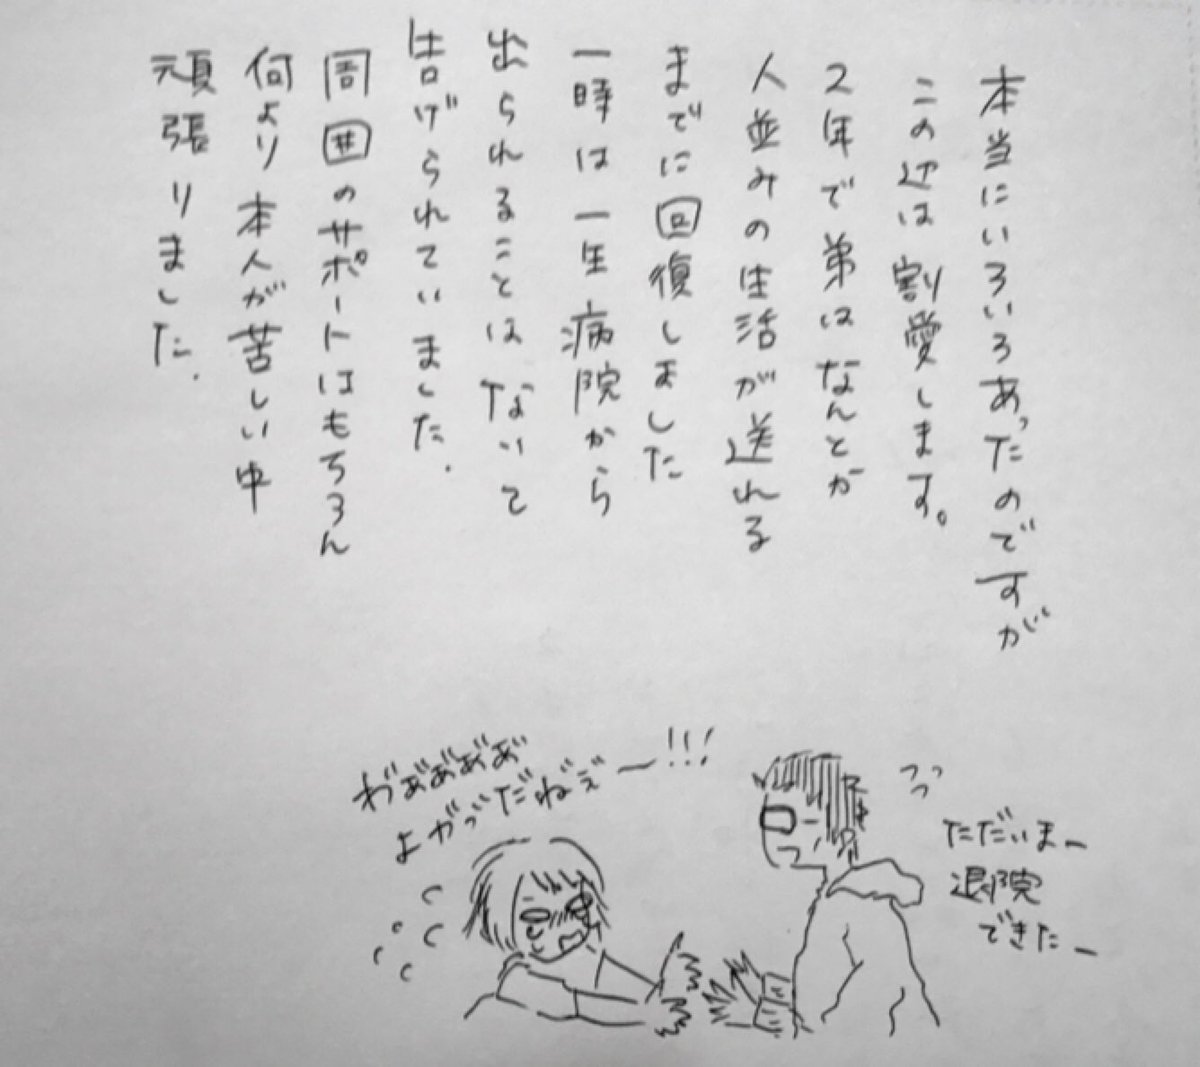 本当にいろいろあったのですが
この辺は割愛します。
2年で弟はなんとか
人並みの生活が送れる
までに回復しました
一時は一生病院から
出られることはないて
告げられていました.
周囲のサポートはもちろん
何より本人が苦しい中
頑張りました.
わ゛ぁ゛ぁ゛ぁ゛ぁ゛
よがっ゛だねぇ゛ー!!!
ただいまー
退院
できたー